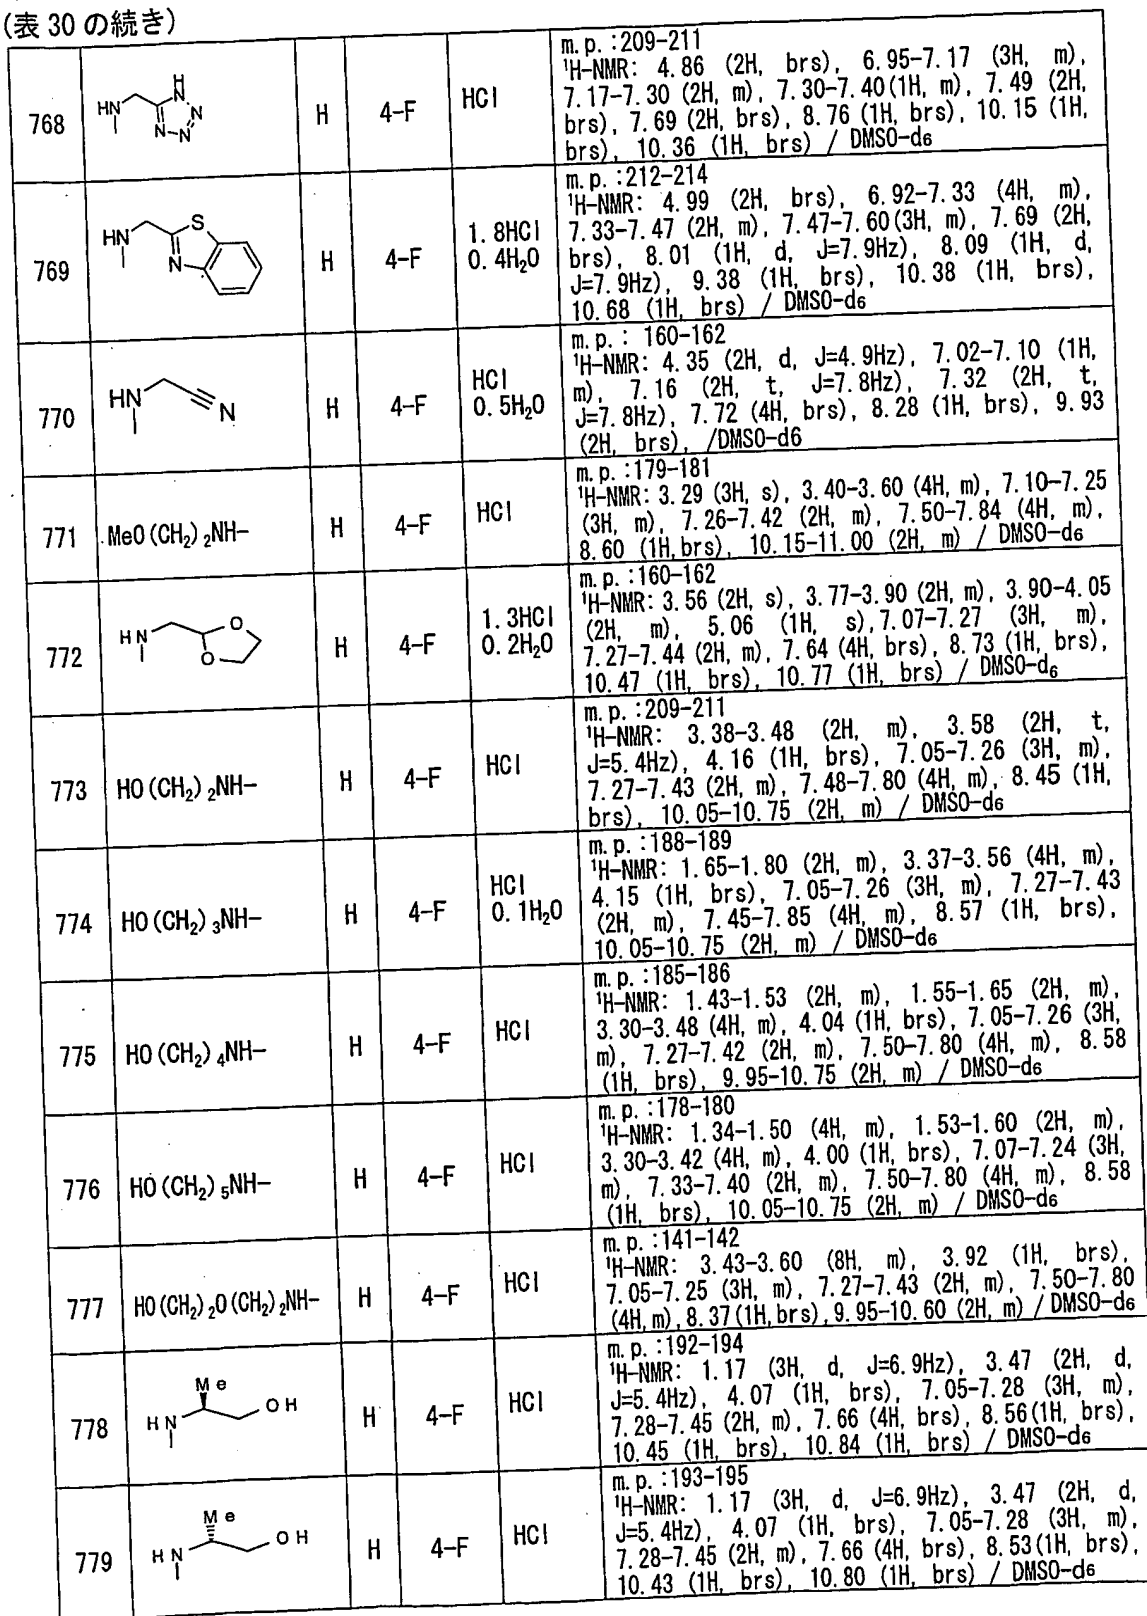 (表 30 の続き)
768
H
HN
N
N
N-N
H
4-F
HCl
m.p.:209-211
¹H-NMR: 4.86 (2H, brs), 6.95-7.17 (3H, m),
7.17-7.30 (2H, m), 7.30-7.40(1H, m), 7.49 (2H,
brs), 7.69 (2H, brs), 8.76 (1H, brs), 10.15 (1H,
brs), 10.36 (1H, brs) / DMSO-d6
769
HN
S
N
H
4-F
1.8HCl
0.4H₂O
m.p.:212-214
¹H-NMR: 4.99 (2H, brs), 6.92-7.33 (4H, m),
7.33-7.47 (2H, m), 7.47-7.60(3H, m), 7.69 (2H,
brs), 8.01 (1H, d, J=7.9Hz), 8.09 (1H, d,
J=7.9Hz), 9.38 (1H, brs), 10.38 (1H, brs),
10.68 (1H, brs) / DMSO-d6
770
HN
N
H
4-F
HCl
0.5H₂O
m.p.: 160-162
¹H-NMR: 4.35 (2H, d, J=4.9Hz), 7.02-7.10 (1H,
m), 7.16 (2H, t, J=7.8Hz), 7.32 (2H, t,
J=7.8Hz), 7.72 (4H, brs), 8.28 (1H, brs), 9.93
(2H, brs), /DMSO-d6
771
MeO(CH₂)₂NH-
H
4-F
HCl
m.p.:179-181
¹H-NMR: 3.29 (3H, s), 3.40-3.60 (4H, m), 7.10-7.25
(3H, m), 7.26-7.42 (2H, m), 7.50-7.84 (4H, m),
8.60 (1H,brs), 10.15-11.00 (2H, m) / DMSO-d6
772
HN
O
O
H
4-F
1.3HCl
0.2H₂O
m.p.:160-162
¹H-NMR: 3.56 (2H, s), 3.77-3.90 (2H, m), 3.90-4.05
(2H, m), 5.06 (1H, s),7.07-7.27 (3H, m),
7.27-7.44 (2H, m), 7.64 (4H, brs), 8.73 (1H, brs),
10.47 (1H, brs), 10.77 (1H, brs) / DMSO-d₆
773
HO(CH₂)₂NH-
H
4-F
HCl
m.p.:209-211
¹H-NMR: 3.38-3.48 (2H, m), 3.58 (2H, t,
J=5.4Hz), 4.16 (1H, brs), 7.05-7.26 (3H, m),
7.27-7.43 (2H, m), 7.48-7.80 (4H, m), 8.45 (1H,
brs), 10.05-10.75 (2H, m) / DMSO-d6
774
HO(CH₂)₃NH-
H
4-F
HCl
0.1H₂O
m.p.:188-189
¹H-NMR: 1.65-1.80 (2H, m), 3.37-3.56 (4H, m),
4.15 (1H, brs), 7.05-7.26 (3H, m), 7.27-7.43
(2H, m), 7.45-7.85 (4H, m), 8.57 (1H, brs),
10.05-10.75 (2H, m) / DMSO-d6
775
HO(CH₂)₄NH-
H
4-F
HCl
m.p.:185-186
¹H-NMR: 1.43-1.53 (2H, m), 1.55-1.65 (2H, m),
3.30-3.48 (4H, m), 4.04 (1H, brs), 7.05-7.26 (3H,
m), 7.27-7.42 (2H, m), 7.50-7.80 (4H, m), 8.58
(1H, brs), 9.95-10.75 (2H, m) / DMSO-d6
776
HO(CH₂)₅NH-
H
4-F
HCl
m.p.:178-180
¹H-NMR: 1.34-1.50 (4H, m), 1.53-1.60 (2H, m),
3.30-3.42 (4H, m), 4.00 (1H, brs), 7.07-7.24 (3H,
m), 7.33-7.40 (2H, m), 7.50-7.80 (4H, m), 8.58
(1H, brs), 10.05-10.75 (2H, m) / DMSO-d6
777
HO(CH₂)₂O(CH₂)₂NH-
H
4-F
HCl
m.p.:141-142
¹H-NMR: 3.43-3.60 (8H, m), 3.92 (1H, brs),
7.05-7.25 (3H, m), 7.27-7.43 (2H, m), 7.50-7.80
(4H,m),8.37(1H,brs),9.95-10.60 (2H,m) / DMSO-d6
778
Me
HN
OH
H
4-F
HCl
m.p.:192-194
¹H-NMR: 1.17 (3H, d, J=6.9Hz), 3.47 (2H, d,
J=5.4Hz), 4.07 (1H, brs), 7.05-7.28 (3H, m),
7.28-7.45 (2H, m), 7.66 (4H, brs), 8.56(1H, brs),
10.45 (1H, brs), 10.84 (1H, brs) / DMSO-d6
779
Me
HN
OH
H
4-F
HCl
m.p.:193-195
¹H-NMR: 1.17 (3H, d, J=6.9Hz), 3.47 (2H, d,
J=5.4Hz), 4.07 (1H, brs), 7.05-7.28 (3H, m),
7.28-7.45 (2H, m), 7.66 (4H, brs), 8.53(1H, brs),
10.43 (1H, brs), 10.80 (1H, brs) / DMSO-d6